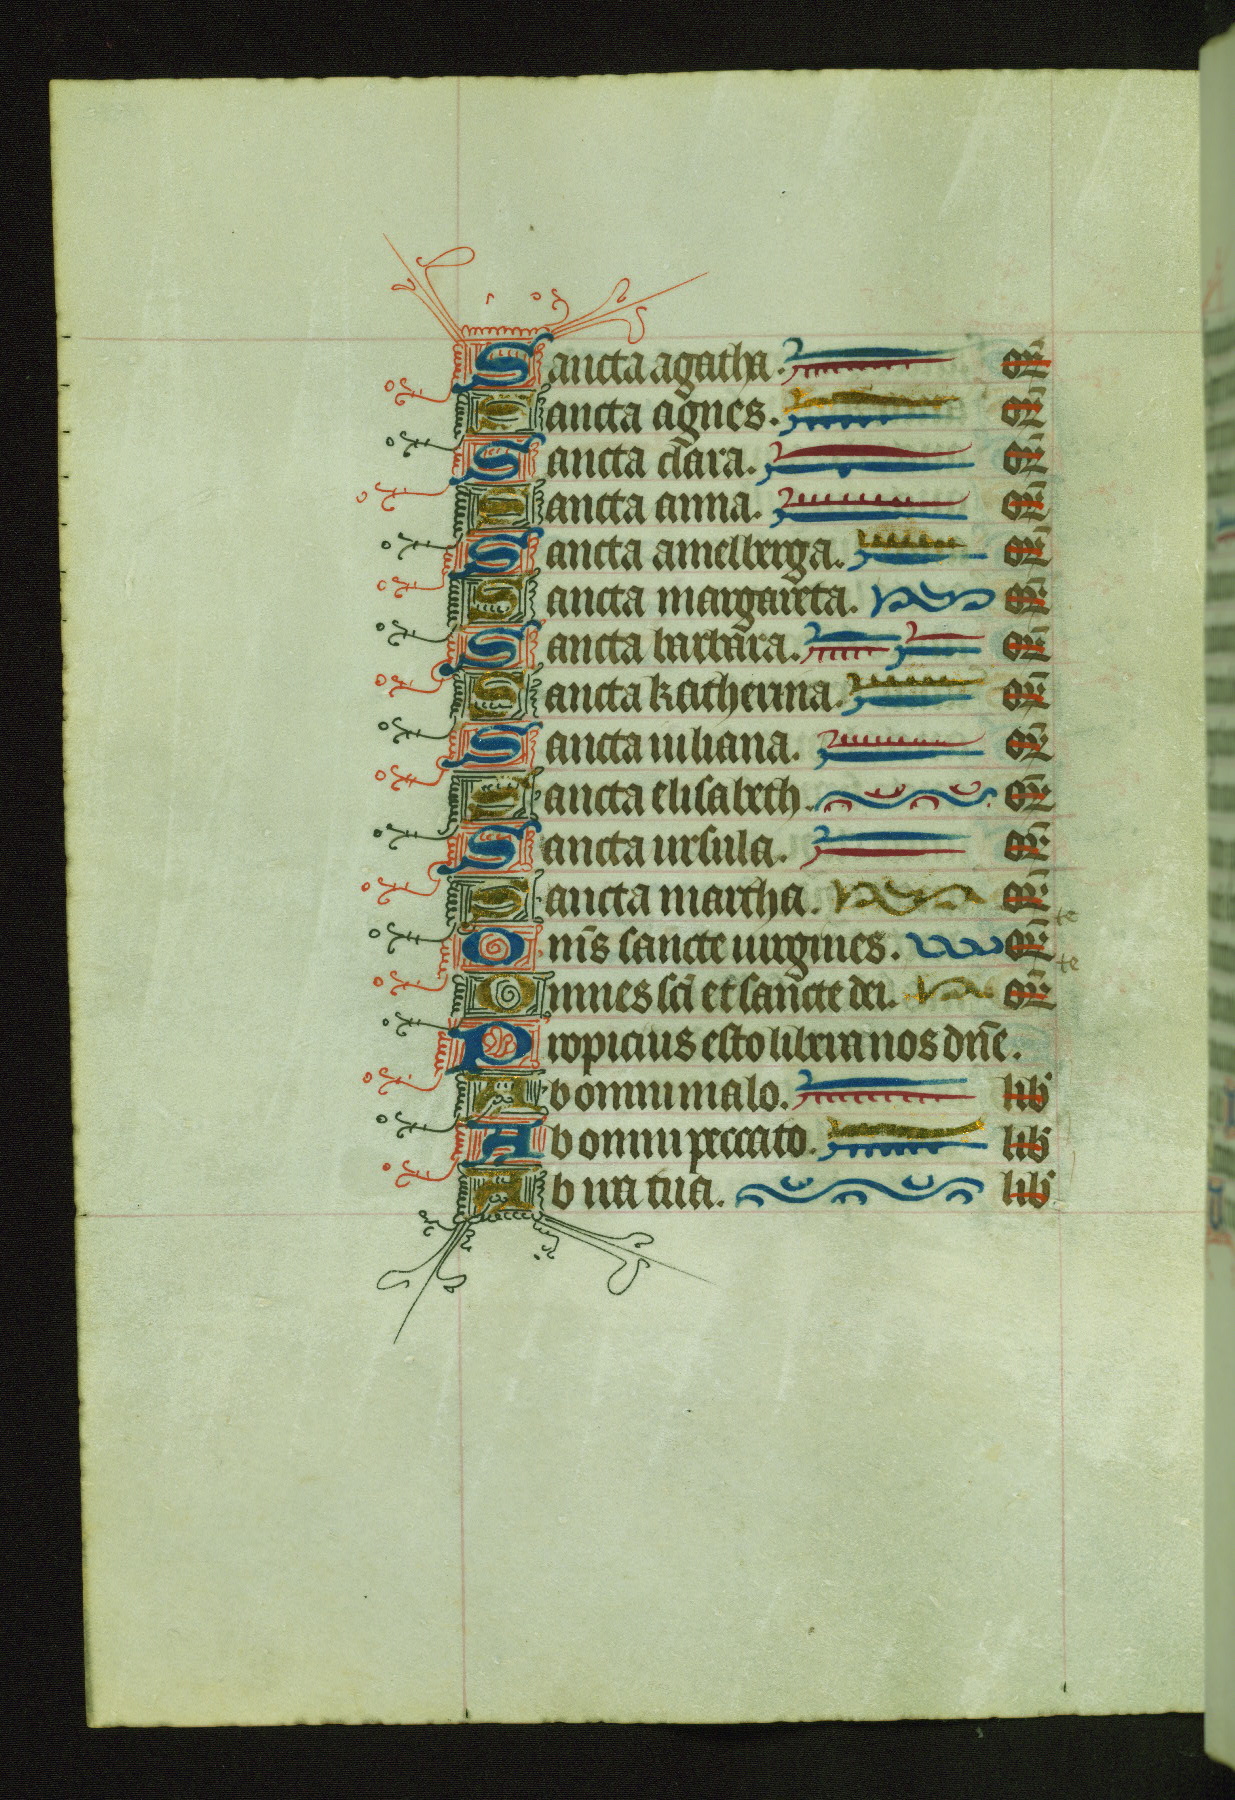 Sancta agatha. or̄
Sancta agnes. or̄
Sancta clara. or̄
Sancta anna. or̄
Sancta amelberga. or̄
Sancta margareta. or̄
Sancta barbara. or̄
Sancta katherina. or̄
Sancta iuliana. or̄
Sancta elisabeth. or̄
Sancta ursula. or̄
Sancta martha. or̄
te
Om̄s sancte uirgines. or̄
te
Omnes sc̄i et sancte dei. or̄
Propicius esto libera nos dn̄e.
Ab omni malo. lib
Ab omni peccato. lib
Ab ira tua. lib